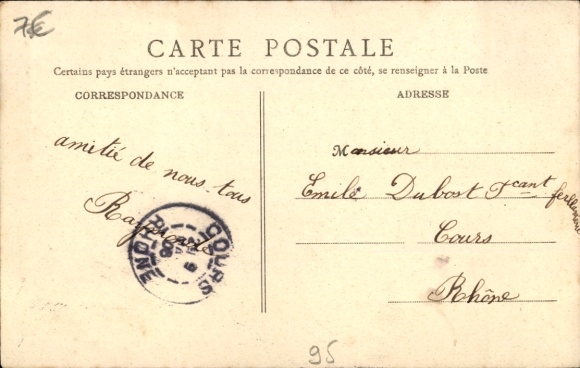 7€
CARTE POSTALE
Certains pays étrangers n'acceptant pas la correspondance de ce côté, se renseigner à la Poste
CORRESPONDANCE
ADRESSE
amitié de nous tous
Monsieur
Emile Dubost Fcant
Cours
Rhône
COURS
RHONE
95